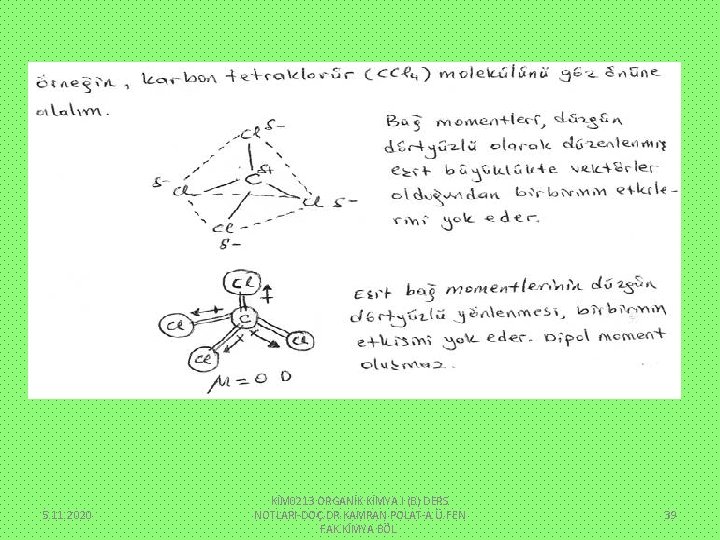 Örneğin, karbon tetraklorür (CCl4) molekülünü göz önüne
alalım.
Cl δ-
δ- Cl
C δ+
Cl δ-
Cl
δ-
Bağ momentleri, düzgün
dörtyüzlü olarak düzenlenmiş
eşit büyüklükte vektörler
olduğundan birbirinin etkile-
rini yok eder.
Cl
Cl
C
Cl
Cl
μ = 0 D
Eşit bağ momentlerinin düzgün
dörtyüzlü yönlenmesi, birbirinin
etkisini yok eder. Dipol moment
oluşmaz.
5.11.2020
KİM0213 ORGANİK KİMYA I (B) DERS
NOTLARI-DOÇ.DR.KAMRAN POLAT-A.Ü.FEN
FAK.KİMYA BÖL
39